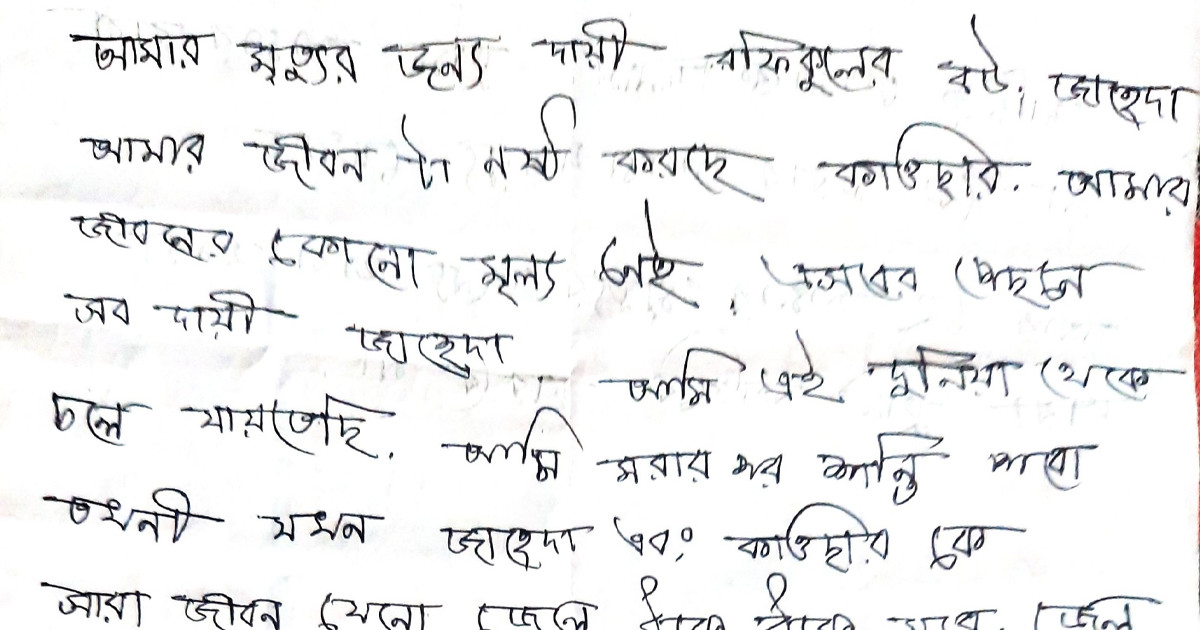 আমার মৃত্যুর জন্য দায়ী রফিকুলের বউ. জাহেদা
আমার জীবন টা নষ্ট করছে কাওছার. আমার
জীবনের কোনো মূল্য নেই. এসবের পেছনে
সব দায়ী জাহেদা আমি এই দুনিয়া থেকে
চলে যায়তেছি. আমি মরার পর শান্তি পাবো
তখনী যখন জাহেদা এবং কাওছার কে
সারা জীবন যেনো জেলে জেল